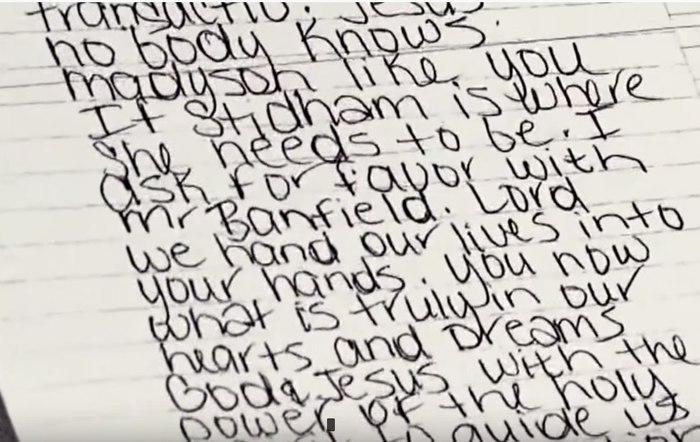 Jesus
no body knows.
madyson like you
If Stidham is where
she needs to be. I
ask for favor with
mr Banfield. Lord
we hand our lives into
your hands. you now
what is truly in our
hearts and Dreams
God & Jesus with the
power of the holy
to guide us